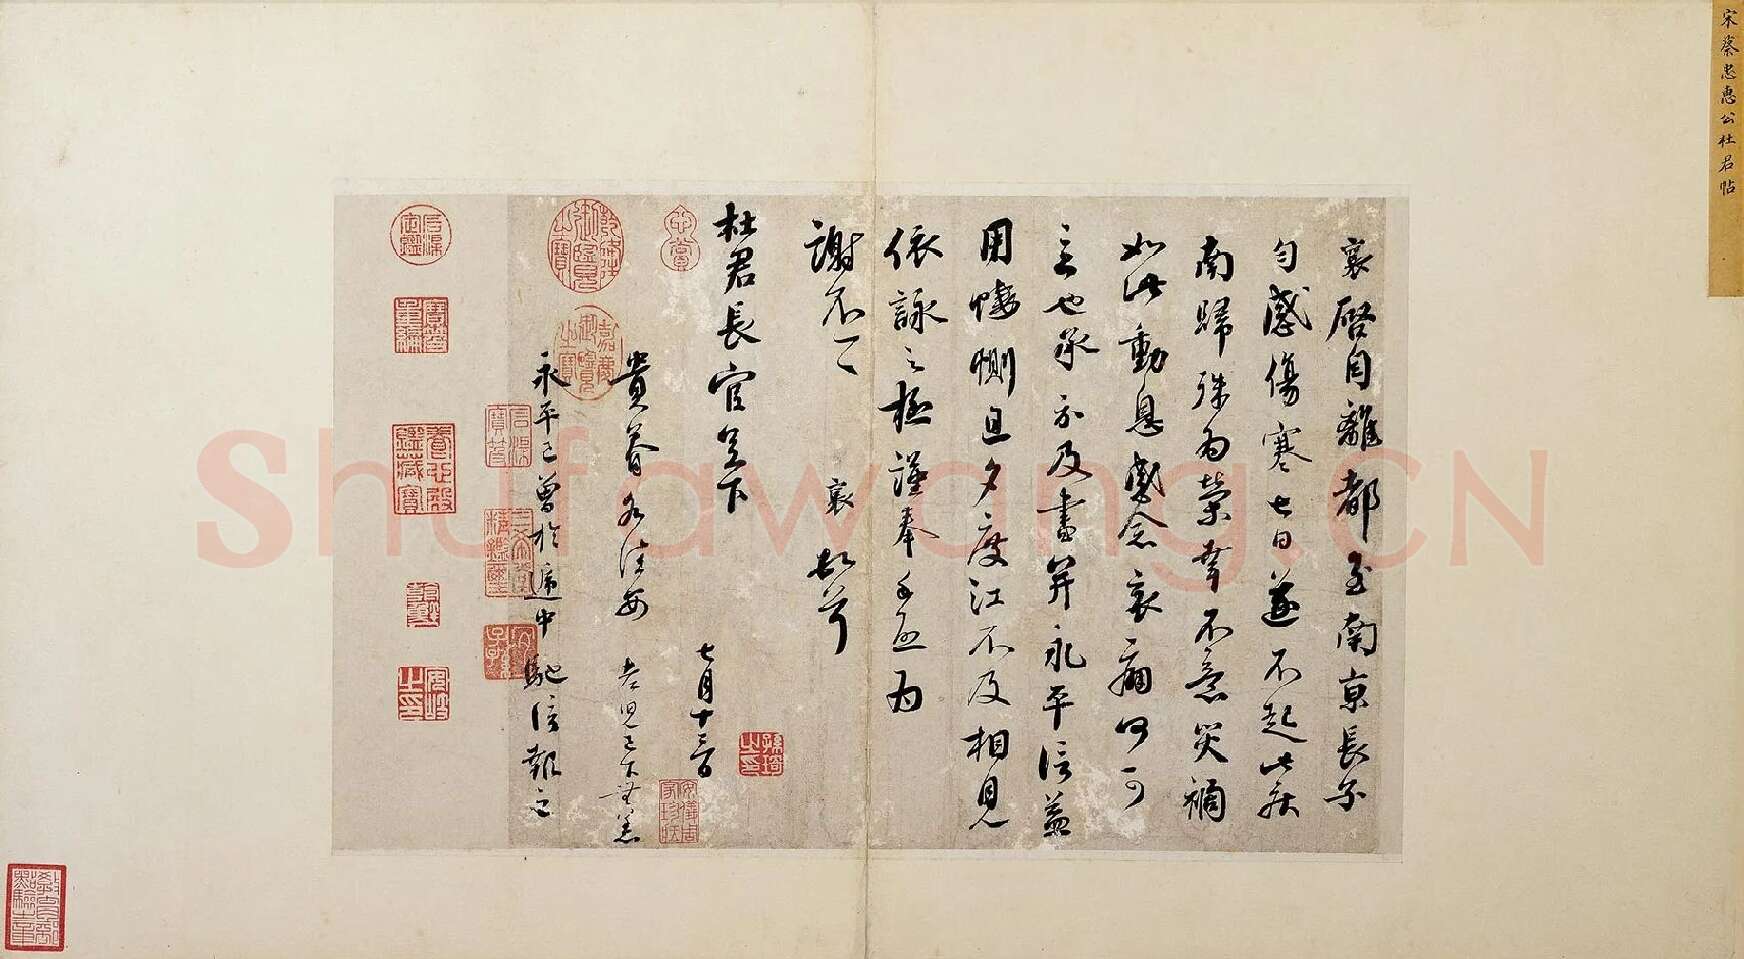 宋蔡忠惠公杜君帖
襄啓自離都至南京長子
勻感傷寒七日遂不起此疾
南歸殊為榮幸不意災禍
如此動息感念哀痛何可
言也承示及書并永平信益
用悽惻旦夕度江不及相見
依詠之極謹奉手啟為
謝不一一 襄 頓首
杜君長官足下
七月十三日
貴眷各佳安 老兒已下無恙
永平已曾於遞中馳信報之
shufawang.CN